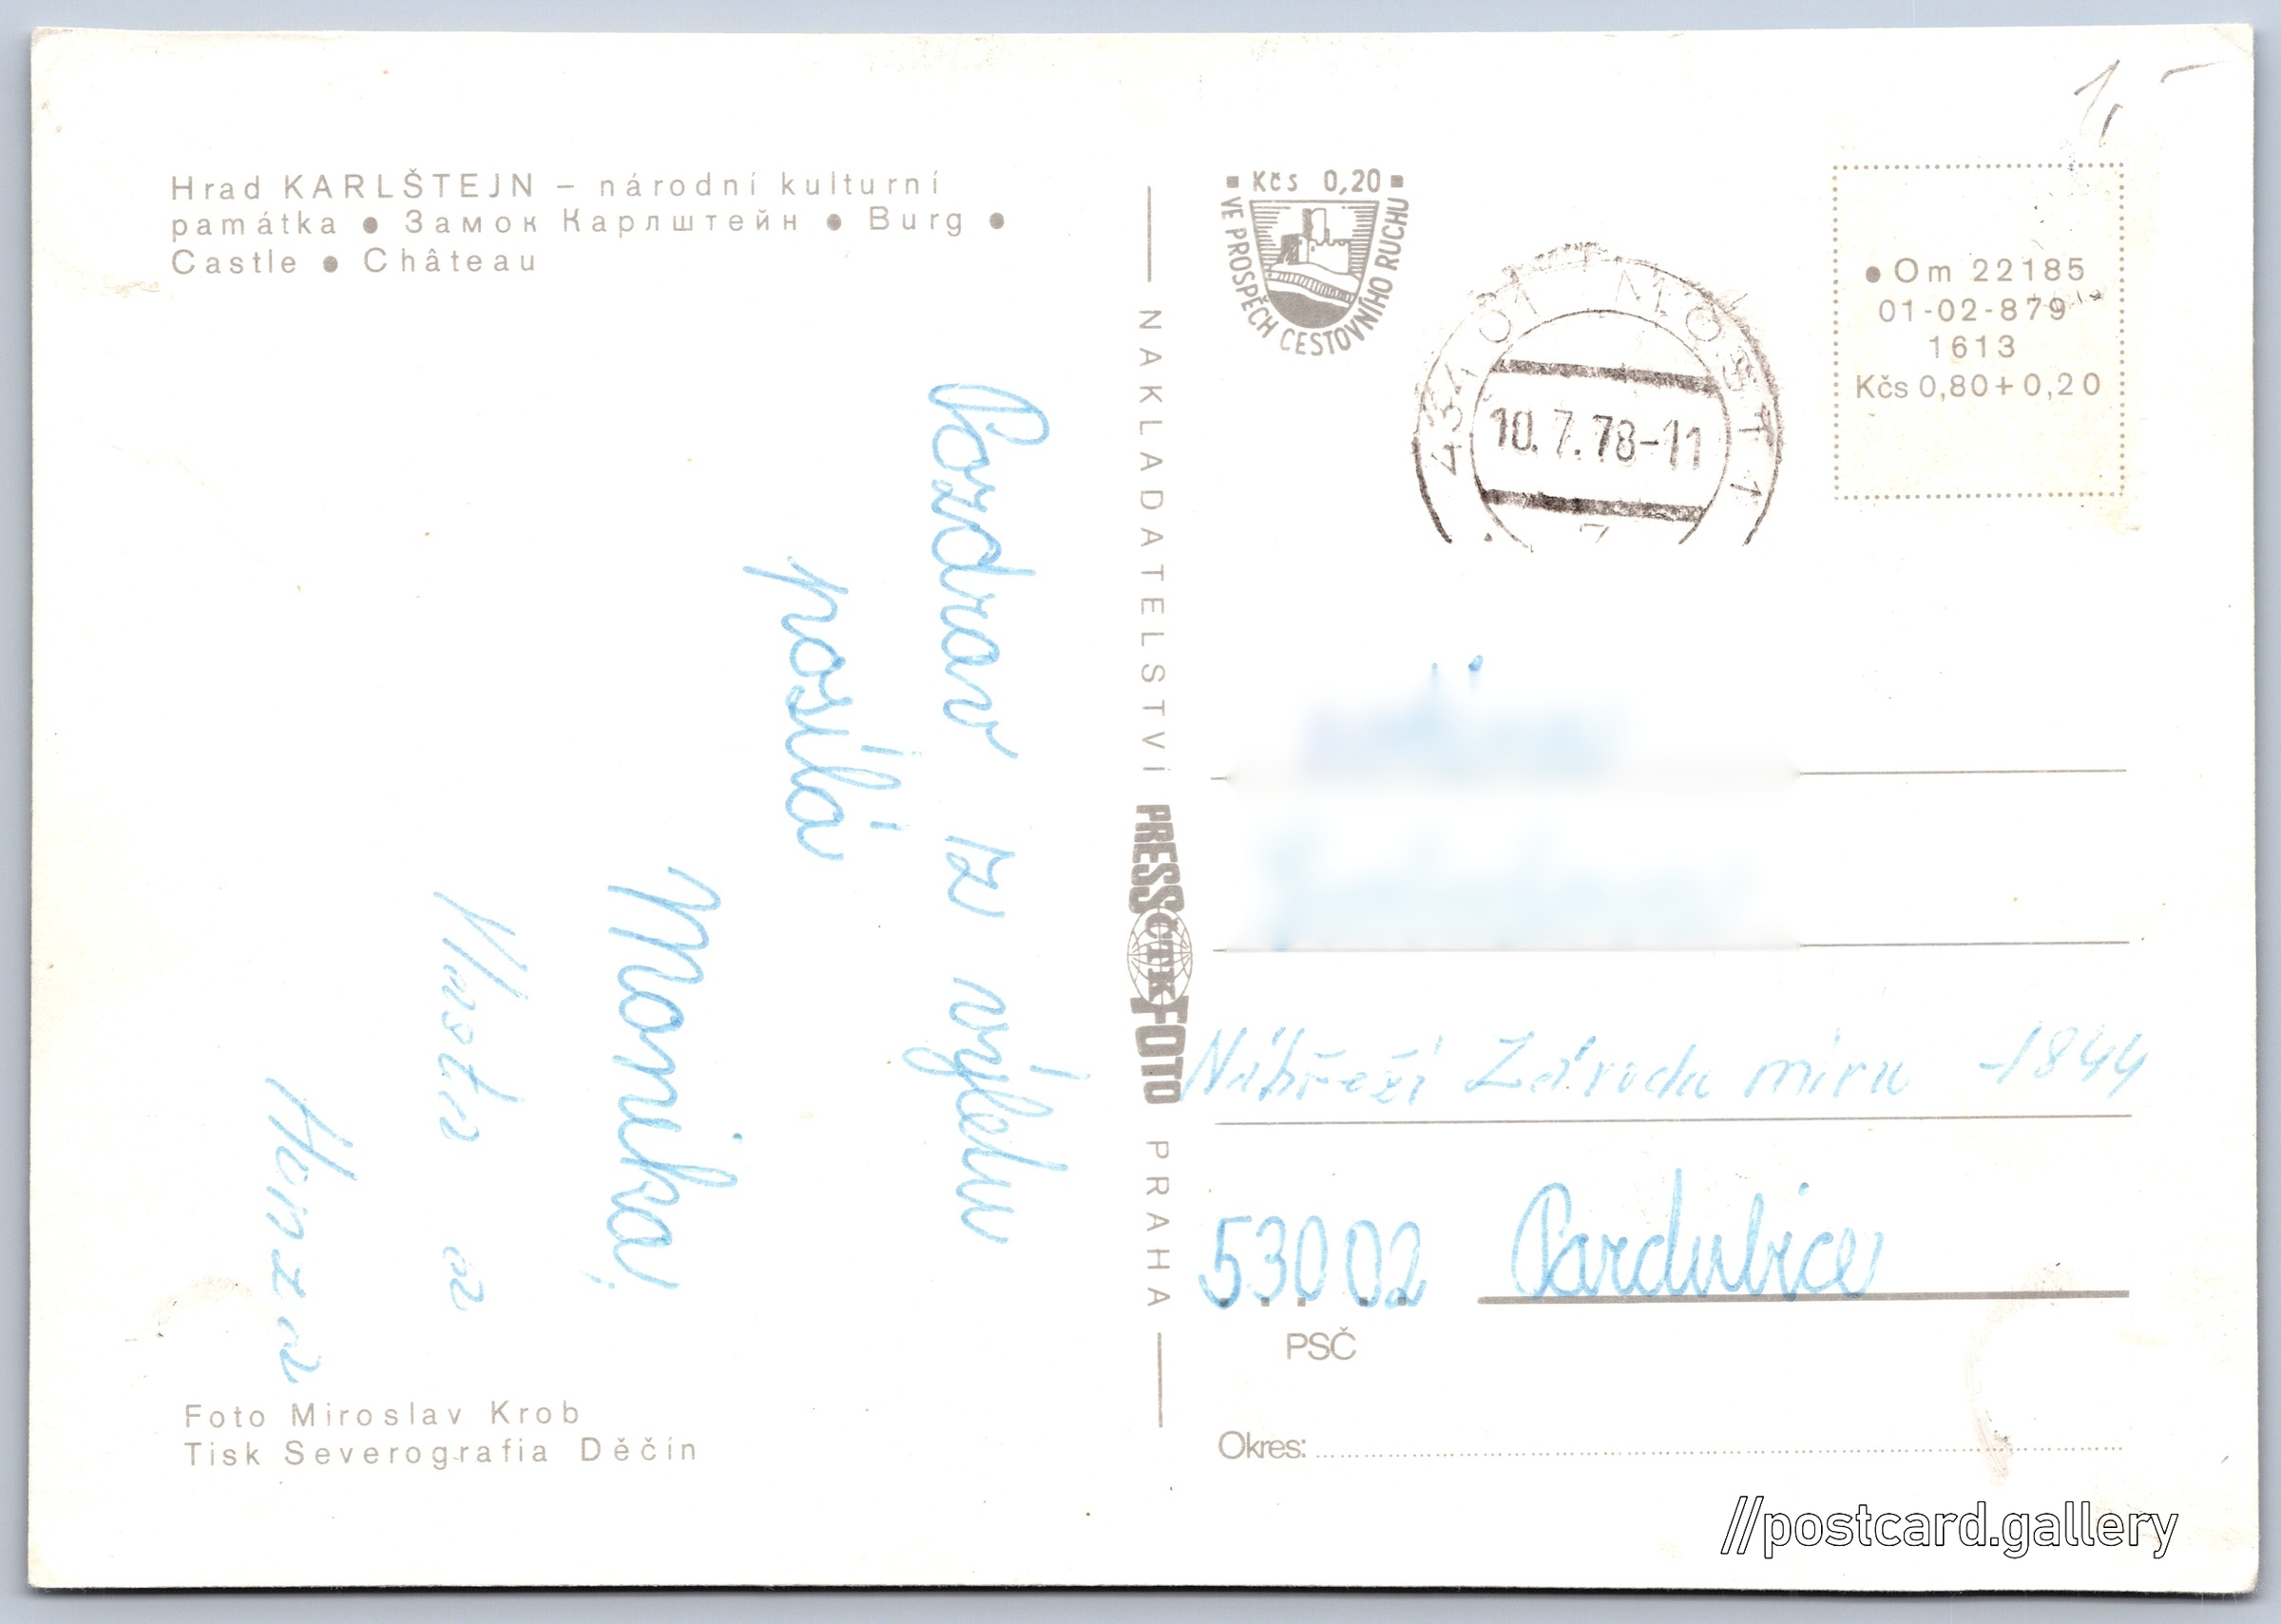 Hrad KARLŠTEJN – národní kulturní
památka ● Замок Карлштейн ● Burg ●
Castle ● Château
Pozdrav z výletu
posílá
Monika,
Vlasta a
Honza
Foto Miroslav Krob
Tisk Severografia Děčín
NAKLADATELSTVÍ PRESSFOTO PRAHA
ČTK
Kčs 0,20
VE PROSPĚCH CESTOVNÍHO RUCHU
434 01 MOST 1
10.7.78-11
1,-
● Om 22185
01-02-879
1613
Kčs 0,80+0,20
Nábřeží Závodu míru -1844
530 02 Pardubice
PSČ
Okres:
//postcard.gallery